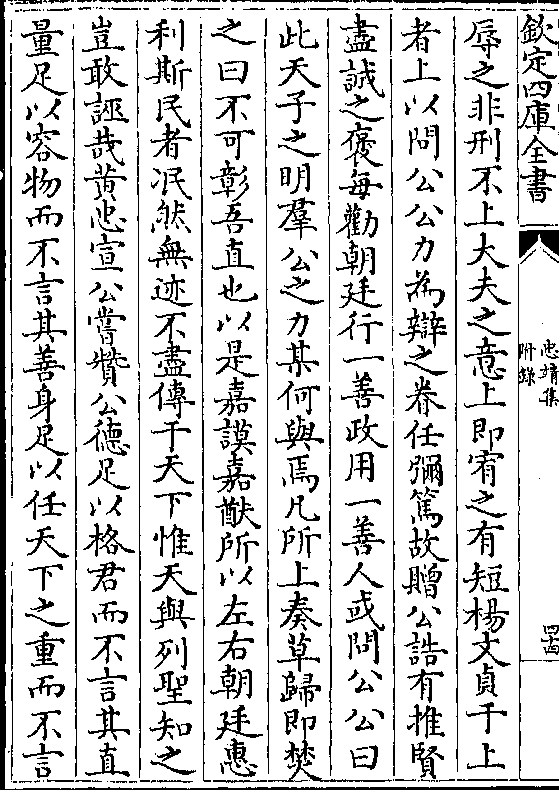 欽定四庫全書
忠靖集
附錄
四十四
辱之非刑不上大夫之意上即宥之有短楊文貞于上
者上以問公公力為辯之眷任彌篤故贈公誥有推賢
盡誠之褒每勸朝廷行一善政用一善人或問公公曰
此天子之明羣公之力某何與焉凡所上奏草歸即焚
之曰不可彰吾直也以是嘉謨嘉猷所以左右朝廷惠
利斯民者泯然無迹不盡傳于天下惟天與列聖知之
豈敢誣哉黄忠宣公嘗贊公德足以格君而不言其直
量足以容物而不言其善身足以任天下之重而不言